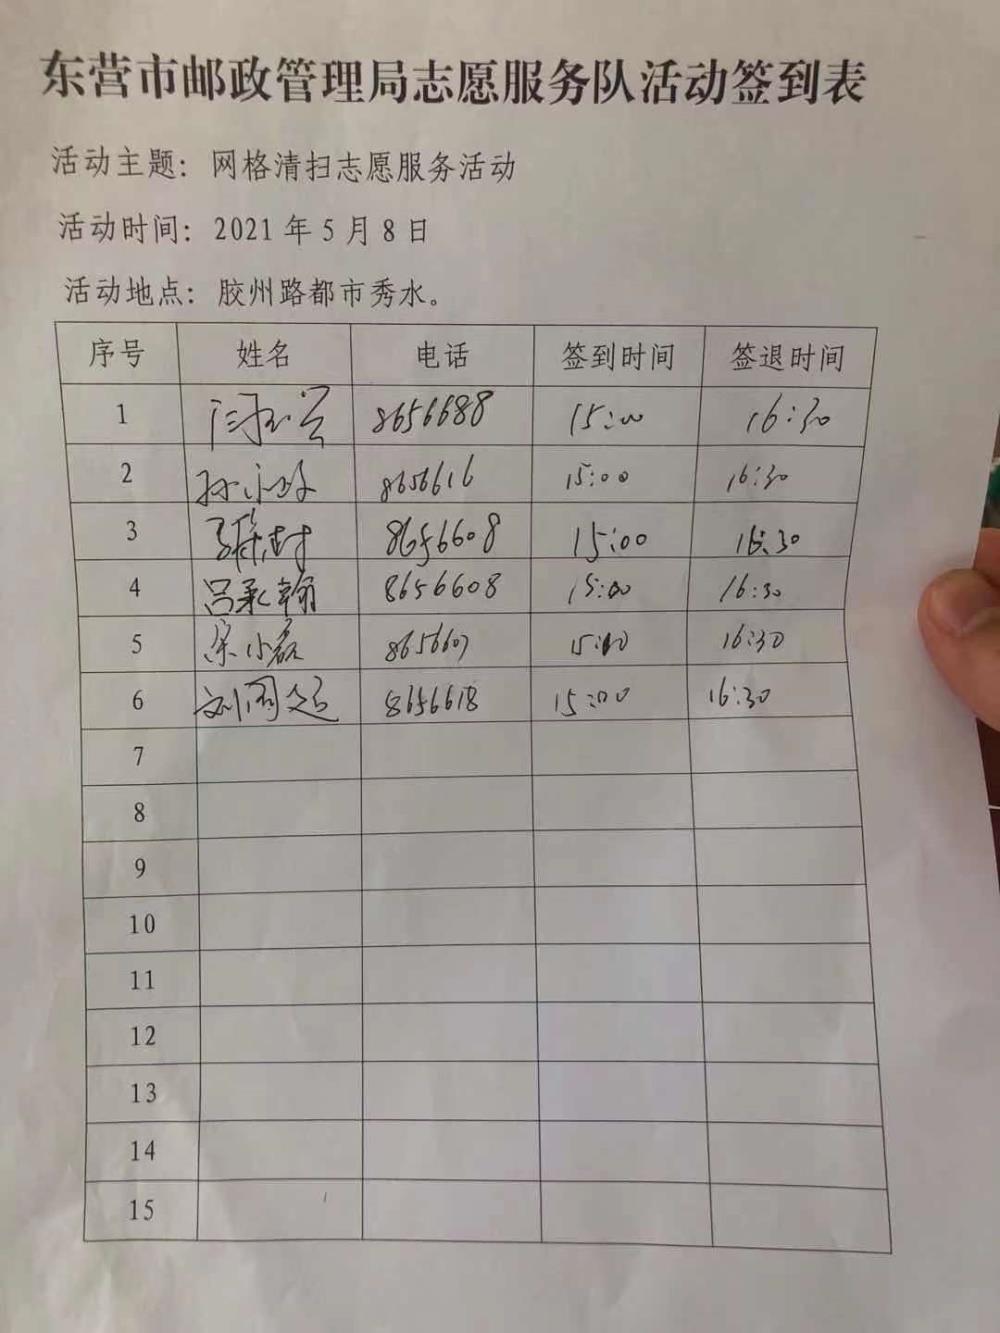 东营市邮政管理局志愿服务队活动签到表
活动主题：网格清扫志愿服务活动
活动时间：2021年5月8日
活动地点：胶州路都市秀水。
序号 姓名 电话 签到时间 签退时间
1 8656688 15:00 16:30
2 孙 8656616 15:00 16:30
3 8656608 15:00 16:30
4 吕承翰 8656608 15:00 16:30
5 宋小磊 15:00 16:30
6 刘 8656618 15:00 16:30
7
8
9
10
11
12
13
14
15